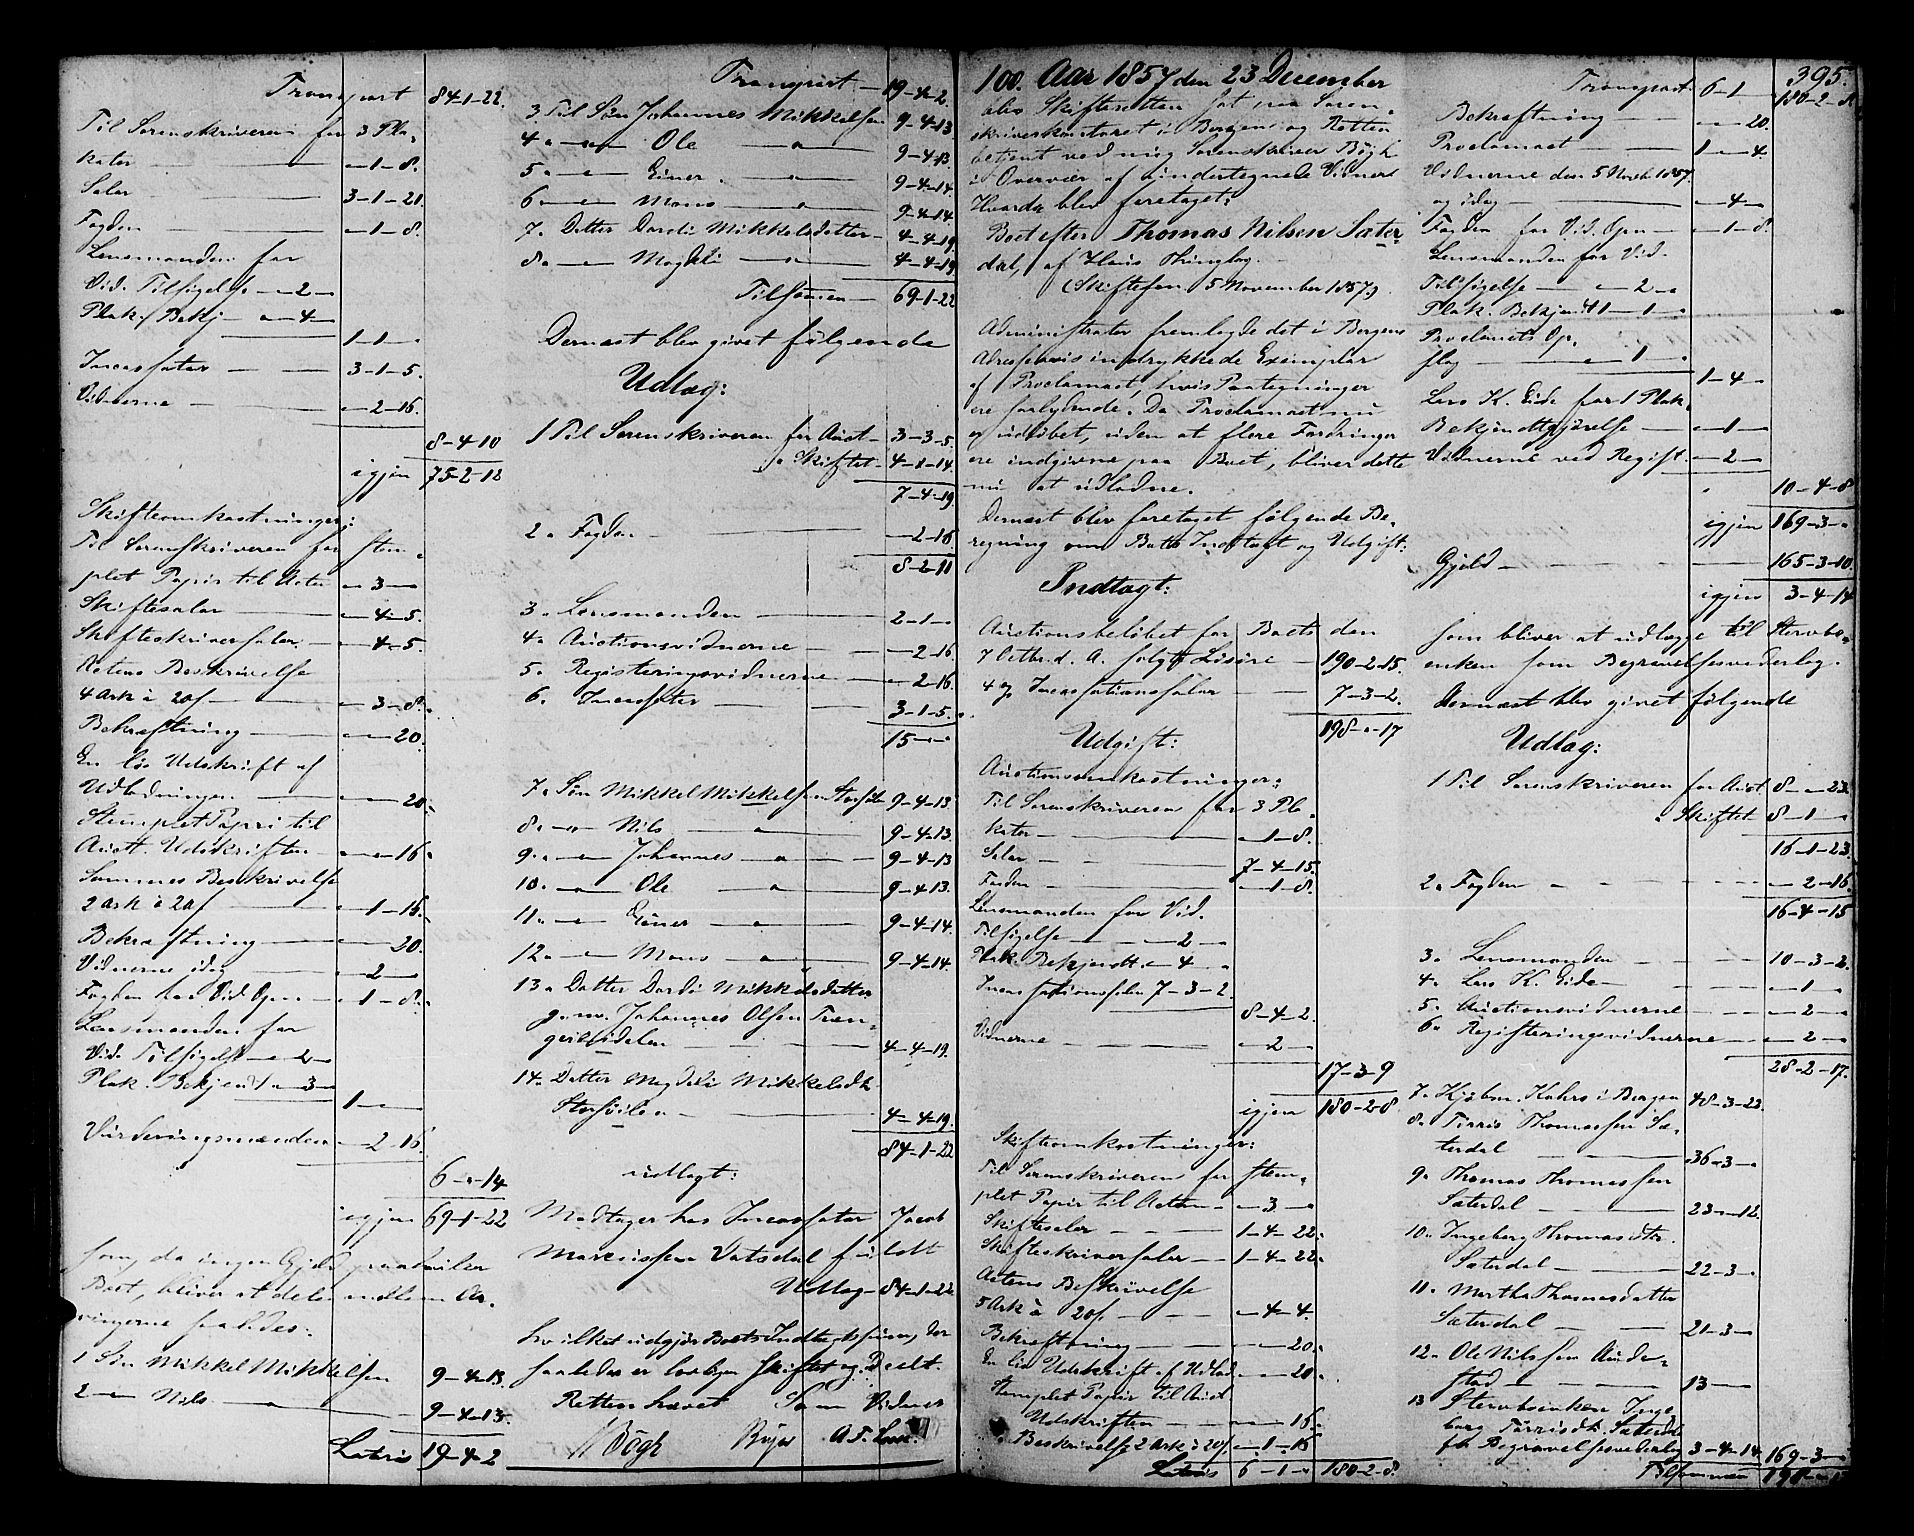 Transport 84-1-22.
Til Sorenskriveren for 3 Pla-
kater - "-1-8.
Salær - 3-1-21.
Fogden - "-1-8.
Lensmanden for
Vid. Tilsigelse - "-2-"
Plak. Bekj - "-4-"
1-1-"
Incassator - 3-1-5.
Vidnerne - "-2-16.
8-4-10
igjen 75-2-12
Skifteomkostninger:
Til Sorenskriveren for stem-
plet Papir til Acten "-3-"
Skiftesalær - "-4-5.
Skifteskriversalær - "-4-5.
Actens Beskrivelse
4 Ark à 20 s - "-3-8.
Bekræftning - "-"-20.
En løs Udskrift af
Udlodningen - "-"-20.
Stemplet Papir til
Auct. Udskriften - "-"-16.
Sammes Beskrivelse
2 Ark à 20 s - "-1-16.
Bekræftning - "-"-20.
Vidnerne idag - "-2-"
Fogden for Vid. Opn - "-1-8.
Lensmanden for
Vid. Tilsigelse "-2-"
Plak. Bekjendt. "-3-"
1-"-"
Vurderingsmændene "-2-16.
6-"-14
igjen 69-1-22
som, da ingen Gjeld paahviler
Boet, bliver at dele mellem Ar-
vingerne saaledes:
1 Søn Mikkel Mikkelsen 9-4-13.
2 - " - Nils - " - 9-4-13.
Lateris 19-4-2
Transport - 19-4-2.
3 Til Søn Johannes Mikkelsen 9-4-13.
4 " - " - Ole - " - 9-4-13
5 " - " - Einer - " - 9-4-14.
6 " - " - Mons - " - 9-4-14.
7. Datter Dordi Mikkelsdatter - 4-4-19
8 " - " - Magdeli - " - 4-4-19
Tilsamen - 69-1-22
Dernæst blev givet følgende
Udlæg:
1 Til Sorenskriveren for Auct - 3-3-5
" Skiftet - 4-1-14.
7-4-19.
2 " Fogden - "-2-16
8-2-11
3 " Lensmanden - 2-1-"
4 " Auctionsvidnerne - "-2-16.
5 " Registeringsvidnerne - "-2-16.
6 " Incassator - 3-1-5.
15-"-"
7 " Søn Mikkel Mikkelsen Storsøilen 9-4-13
8 " - " - Nils - " - 9-4-13.
9 " - " - Johannes - " - 9-4-13
10 " - " - Ole - " - 9-4-13.
11 " - " - Einer - " - 9-4-14.
12 " - " - Mons - " - 9-4-14.
13 " Datter Dordi Mikkelsdatter
g. m. Johannes Olsen Træn-
gereidalen - 4-4-19.
14 " Datter Magdeli Mikkelsdtr.
Storsøilen - 4-4-19.
84-1-22
udlagt:
Modtager hos Incassator Jacob
Markussen Vatsdal fuldt
Udlæg - 84-1-22
hvilket udgjør Boets Indtægtssum, der
saaledes er lovligen skiftet og deelt.
Retten hævet Som Vidner
M Bøgh
100. Aar 1857 den 23 December
blev Skifteretten sat paa Soren-
skriverkontoret i Bergen og Retten
betjent ved mig Sorenskriver Bøgh
i Overvær af undertegnede Vidner
Hvorda blev foretaget:
Boet efter Thomas Nilsen Sæter-
dal, af Hans Thinglag.
(Skiftesam. 5 November 1857.)
Administrator fremlagde det i Bergens
Adresseavis indrykkede Exemplar
af Proclamaet, hvis Paategninger
ere saalydende. Da Proclamaet nu
er udløbet, uden at flere Fordringer
ere indgivne paa Boet, bliver dette
nu at udlodne.
Dernæst blev foretaget følgende Be-
regning over Boets Indtægt og Udgift:
Indtægt:
Auctionsbeløbet for Boets den
7 Octbr. d. A. solgte Løsøre - 190-2-15.
4 % Incassationssalær - 7-3-2.
198-"-17
Udgift:
Auctionsomkostninger:
Til Sorenskriveren for 3 Pla-
kater - "-1-8.
Salær - 7-4-15.
Fogden - "-1-8.
Lensmanden for Vid.
Tilsigelse - "-2-"
Plak. Bekjendt. "-4-"
Incassationssalær 7-3-2.
8-4-2.
Vidnerne - "-2-"
17-3-9
igjen 180-2-8
Skifteomkostninger:
Til Sorenskriveren for stem-
plet Papir til Acten "-3-"
Skiftesalær - 1-4-22.
Skifteskriversalær - 1-4-22.
Actens Beskrivelse
5 Ark à 20 s. - "-4-4.
Bekræftning - "-"-20.
En løs Udskrift af Udlod. "-"-20.
Stemplet Papir til Auct
Udskriften - "-"-16.
" Beskrivelse 2 Ark à 20 s. "-1-16
Lateris 6-1-" 180-2-8.
395.
Transport 6-1-" 180-2-8
Bekræftning - "-"-20.
Proclamaet - 1-"-4.
Vidnerne den 5 Novbr 1857.
og idag - "-4-"
Fogden for Vid. Opn - "-1-8.
Lensmanden for Vid.
Tilsigelse - "-2-"
Plak. Bekjendt 1-1-"
Proclamets Op-
slag - "-1-"
1-4-"
Lars K. Eide for 1 Plak.
Bekjendtgjørelse - "-1-"
Vidnerne ved Regist. "-2-"
10-4-8
igjen 169-3-"
Gjeld - 165-3-10.
igjen 3-4-14
som bliver at udlægge til Stervbo-
enken som Begravelsesvederlag.
Dernæst blev givet følgende
Udlæg:
1 Til Sorenskriveren for Auct. 8-"-23.
" Skiftet 8-1-"
16-1-23.
2 " Fogden - "-2-16.
16-4-15
3 " Lensmanden - 10-3-2.
4 " Lars K. Eide - "-1-"
5 " Auctionsvidnerne - "-2-"
6 " Registeringsvidnerne - "-2-"
28-2-17.
7 " Kjøbm. Kahrs i Bergen 48-3-23.
8 " Tørris Thomassen Sæ-
terdal - 36-3-"
9 " Thomas Thomassen
Sæterdal - 23-"-12.
10 " Ingeborg Thomasdtr.
Sæterdal - 22-3-"
11 " Martha Thomasdatter
Sæterdal - 21-3-"
12 " Ole Nilssen Aude-
stad - 13-"
13 " Stervboenken Inge-
borg Tørrisdtr. Sæterdal
for Begravelsesvederlag 3-4-14 169-3-"
Tilsammen 198-"-17